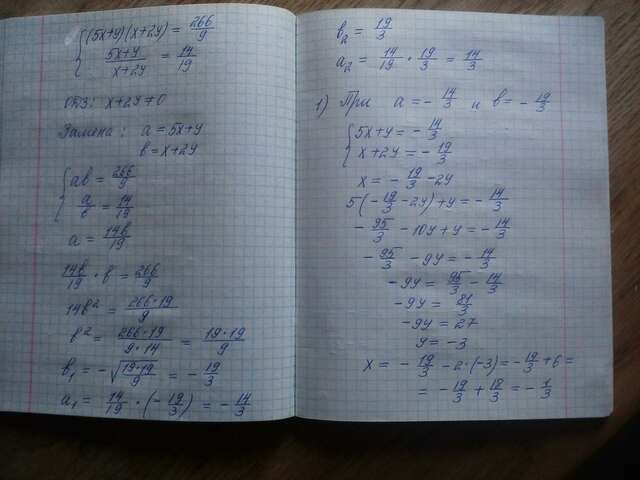 {(5x+y)(x+2y) = 266/9
{(5x+y)/(x+2y) = 14/19
ОДЗ: x+2y≠0
Замена: a = 5x+y
в = x+2y
{aв = 266/9
{a/в = 14/19
a = 14в/19
14в/19 · в = 266/9
14в² = 266·19/9
в² = 266·19/9·14 = 19·19/9
в₁ = -√(19·19/9) = -19/3
a₁ = 14/19 · (-19/3) = -14/3
в₂ = 19/3
a₂ = 14/19 · 19/3 = 14/3
1) При a = -14/3 и в = -19/3
{5x+y = -14/3
{x+2y = -19/3
x = -19/3 - 2y
5(-19/3 - 2y) + y = -14/3
-95/3 - 10y + y = -14/3
-95/3 - 9y = -14/3
-9y = 95/3 - 14/3
-9y = 81/3
-9y = 27
y = -3
x = -19/3 - 2·(-3) = -19/3 + 6 =
= -19/3 + 18/3 = -1/3